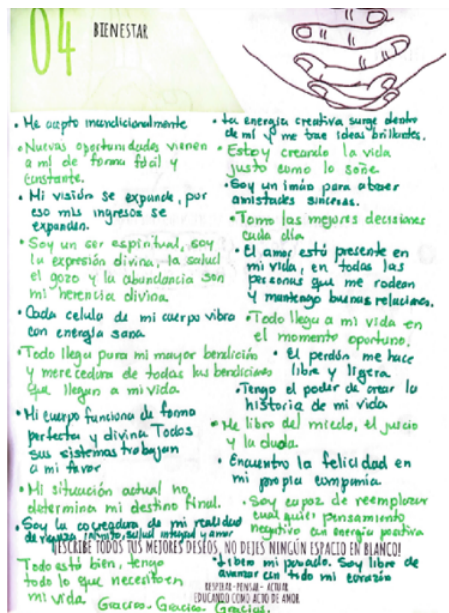 04
BIENESTAR
• Me acepto incondicionalmente
• Nuevas oportunidades vienen
a mí de forma fácil y
constante.
• Mi visión se expande, por
eso mis ingresos se
expanden.
• Soy un ser espiritual, soy
la expresión divina, la salud
el gozo y la abundancia son
mi herencia divina.
• Cada celula de mi cuerpo vibra
con energía sana
• Todo llega para mi mayor bendición
y merecedora de todas las bendiciones
que llegan a mi vida.
• Mi cuerpo funciona de forma
perfecta y divina Todos
sus sistemas trabajan
a mi favor
• Mi situación actual no
determina mi destino final.
• Soy la cocreadora de mi realidad
infinito, salud integral y amor
• La energía creativa surge dentro
de mí y me trae ideas brillantes.
• Estoy creando la vida
justo como lo soñe.
• Soy un imán para atraer
amistades sinceras.
• Tomo las mejores decisiones
cada día
• El amor está presente en
mi vida, en todas las
personas que me rodean
y mantengo buenas relaciones.
• Todo llega a mi vida en
el momento oportuno.
• El perdón me hace
libre y ligera.
• Tengo el poder de crear la
historia de mi vida
• Me libro del miedo, el juicio
y la duda.
• Encuentro la felicidad en
mi propia compañia.
• Soy capaz de reemplazar
cualquier pensamiento
negativo con energía positiva
¡ESCRIBE TODOS TUS MEJORES DESEOS, NO DEJES NINGÚN ESPACIO EN BLANCO!
Todo está bien, tengo
todo lo que necesito en
mi vida.
• Libero mi pasado. Soy libre de
avanzar con todo mi corazón
RESPIRAR-PENSAR- ACTUAR
EDUCANDO COMO ACTO DE AMOR
Gracias. Gracias. Gracias.